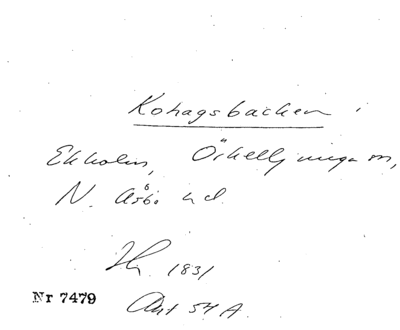 Kohagsbacken
Ekholm, Örkelljunga sn,
N. Åsbo hd.
Hy. 1831
Nr 7479
Akt 54 A.